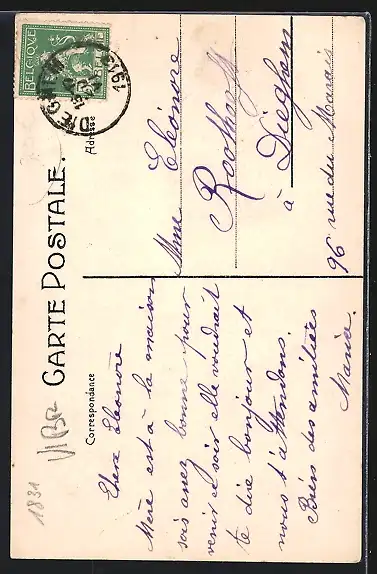 CARTE POSTALE.
Correspondance
Adresse
BELGIQUE
1831
Chère Eléonore
Mère est à la maison
sois assez bonne pour
venir la voir elle voudrait
te dire bonjour et
nous t'attendons.
Bien des amitiées
Maria.
Mme Eléonore
Roothooft
à Dieghem
96 rue du Marais